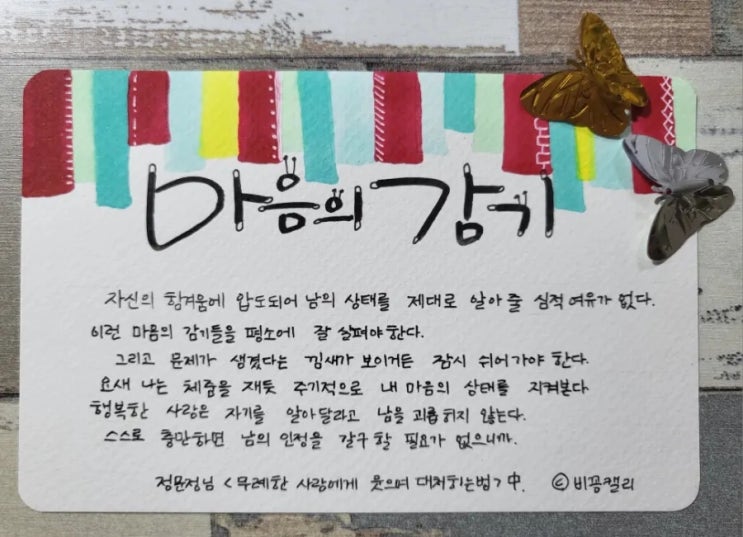 마음의 감기
자신의 힘겨움에 압도되어 남의 상태를 제대로 알아 줄 심적 여유가 없다.
이런 마음의 감기들을 평소에 잘 살펴야 한다.
그리고 문제가 생겼다는 낌새가 보이거든 잠시 쉬어가야 한다.
요새 나는 체중을 재듯 주기적으로 내 마음의 상태를 지켜본다
행복한 사람은 자기를 알아달라고 남을 괴롭히지 않는다.
스스로 충만하면 남의 인정을 갈구할 필요가 없으니까.
정문정님 <무례한 사람에게 웃으며 대처하는법> 中. ⓒ비꽁캘리